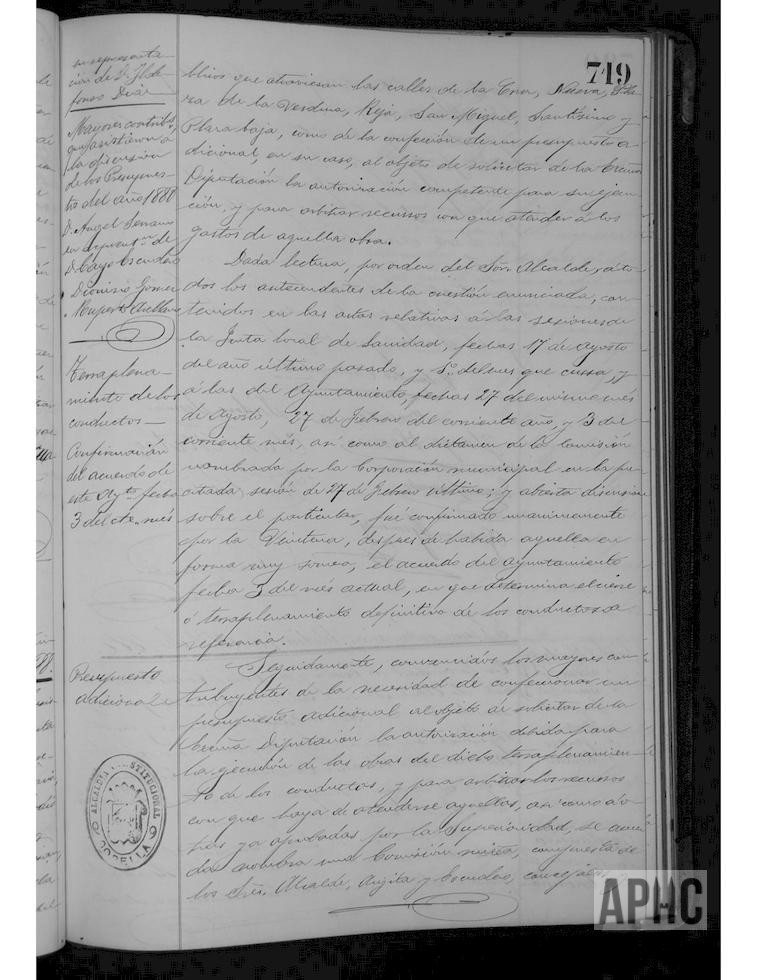 719
su representa-
ción de D. Ilde-
fonso Díaz
Mayores contribs.
que asistieron a
la discusión
de los Presupues-
tos del año 1888
D. Angel Serrano
en represon. de
D. Cayo Escudero
Dionisio Gómez
Ruperto Arellano
Terraplena-
miento de los
conductos—
Confirmación
del acuerdo de
este Aytº. fecha
3 del cte. mes
Presupuesto
adicional
blicos que atraviesan las calles de la Cruz, Nueva,
ra de la Verdura, Reja, San Miguel, Santísimo y
Plaza baja, como de la confección de un presupuesto a-
dicional, en su caso, al objeto de solicitar de la Excma
Diputación la autorización competente para su ejecu-
ción, y para arbitrar recursos con que atender á los
gastos de aquella obra.
Dada lectura, por orden del Sor. Alcalde, á to-
dos los antecedentes de la cuestión enunciada, con-
tenidos en las actas relativas á las sesiones de
la Junta local de Sanidad, fechas 17 de Agosto
del año último pasado, y 1º. del mes que cursa, y
á las del Ayuntamiento, fechas 27 del mismo mes
de Agosto, 27 de Febrero del corriente año, y 3 del
corriente mes, así como al dictamen de la Comisión
nombrada por la Corporación municipal en la pre-
citada sesión de 27 de Febrero último; y abierta discusión
sobre el particular, fué confirmado unánimemente
por la Veintena, después de habida aquella en
forma muy somera, el acuerdo del Ayuntamiento
fecha 3 del mes actual, en que determina el cierre
ó terraplenamiento definitivo de los conductos de
referencia.
Seguidamente, convencidos los mayores con-
tribuyentes de la necesidad de confeccionar un
presupuesto adicional al objeto de solicitar de la
Excma Diputación la autorización debida para
la ejecución de las obras del dicho terraplenamien-
to de los conductos, y para arbitrar los recursos
con que haya de atenderse aquellos, así como á o-
tras ya aprobadas por la Superioridad, se acuer-
da nombrar una Comisión mixta, compuesta de
los Sres. Alcalde, Angita y Escudero, concejales
ALCALDIA CONSTITUCIONAL
CORELLA
APHC